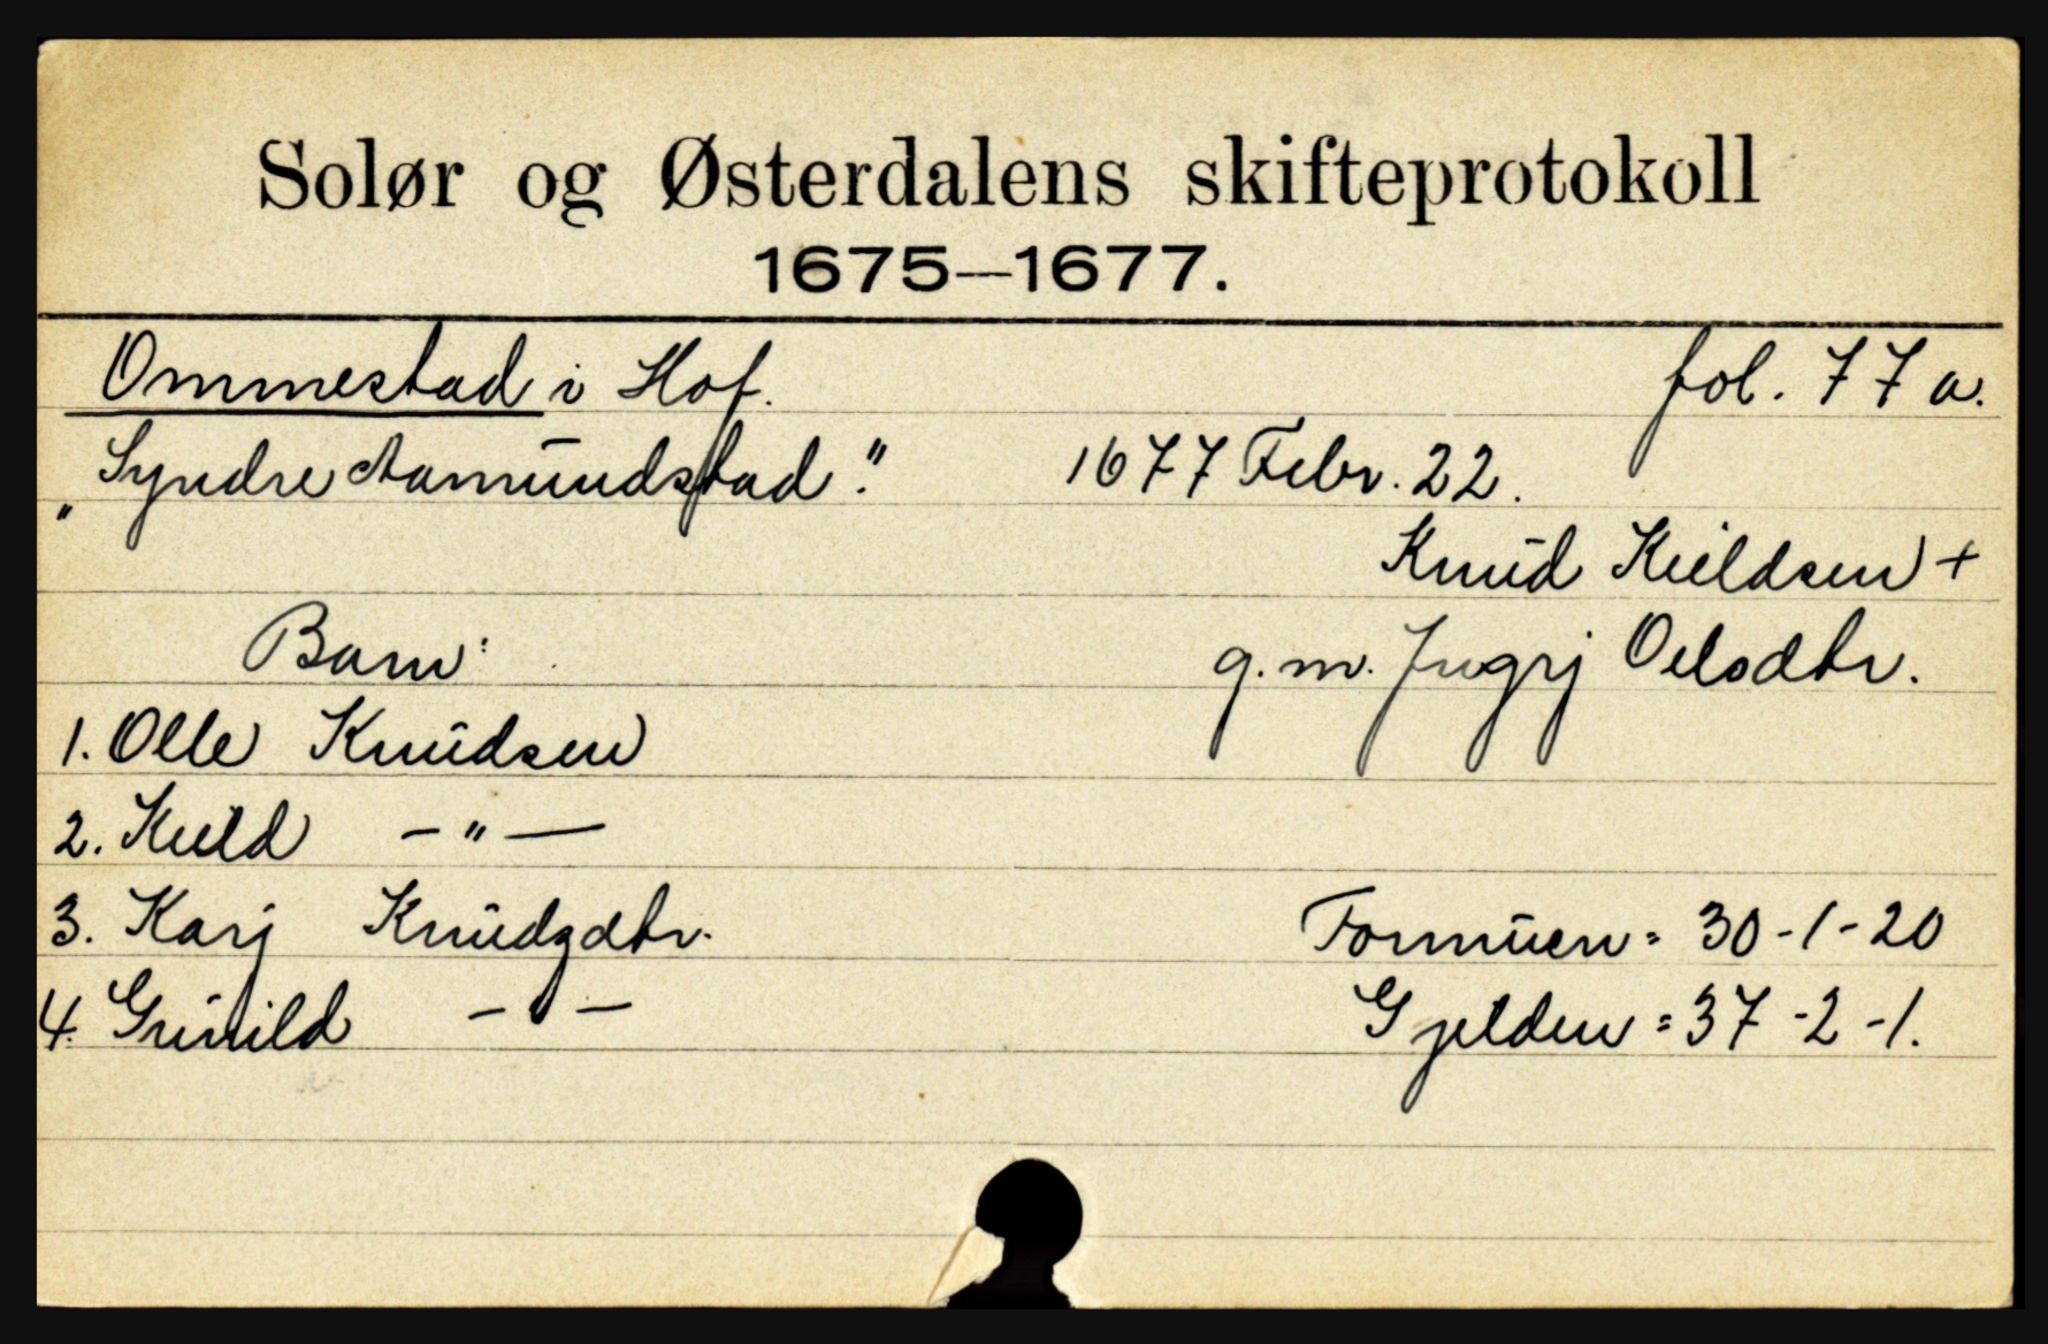 Solør og Østerdalens skifteprotokoll
1675—1677.
Ommestad i Hof. fol. 77 a.
"Syndre Aamundstad." 1677 Febr. 22.
Knud Kieldsen +
Barn: g. m. Jngrj Oelsdtr.
1. Olle Knudsen
2. Kield — " —
3. Karj Knudzdtr. Formuen = 30-1-20
4. Gunild — " — Gjelden = 37-2-1.